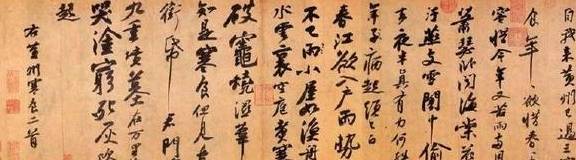 自我來黃州已過三
食年年欲惜春
容惜今年又苦雨兩月
蕭瑟臥聞海棠花
汙燕支雪闇中偷
去夜半真有力何殊
年子病起頭已白
春江欲入戶雨勢
不已雨小屋如漁舟
水雲裏空庖煮寒
破竈燒濕葦
知是寒食但見烏
銜帋君門
九重墳墓在万里
哭塗窮死灰吹
起
右黃州寒食二首